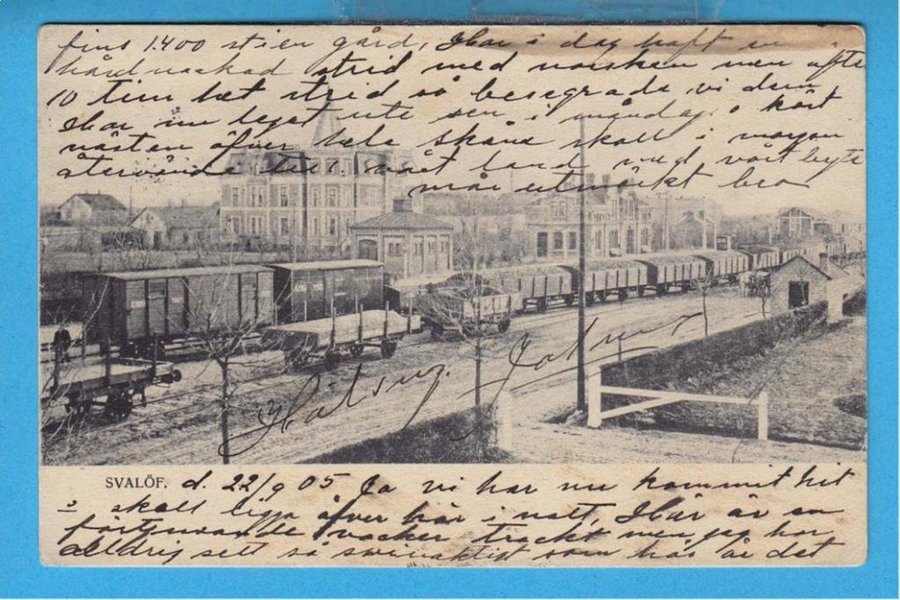 fins 1.400 st i en gård, Här i dag haft en
hårdnackad strid med norsken men efter
10 tim het strid så besegrade vi dem
Har nu legat ute sen i måndag o kört
nästan öfver hela skåne skall i morgon
återvända till vårt land med vårt byte
mår utmärkt bra
Hälsng. Hjalmar
SVALÖF. d. 22/9 05 Ja vi har nu kommit hit
o skall ligga öfver här i natt, Här är en
förtjusande vacker trackt men jag har
alldrig sett så svinaktigt som här är det